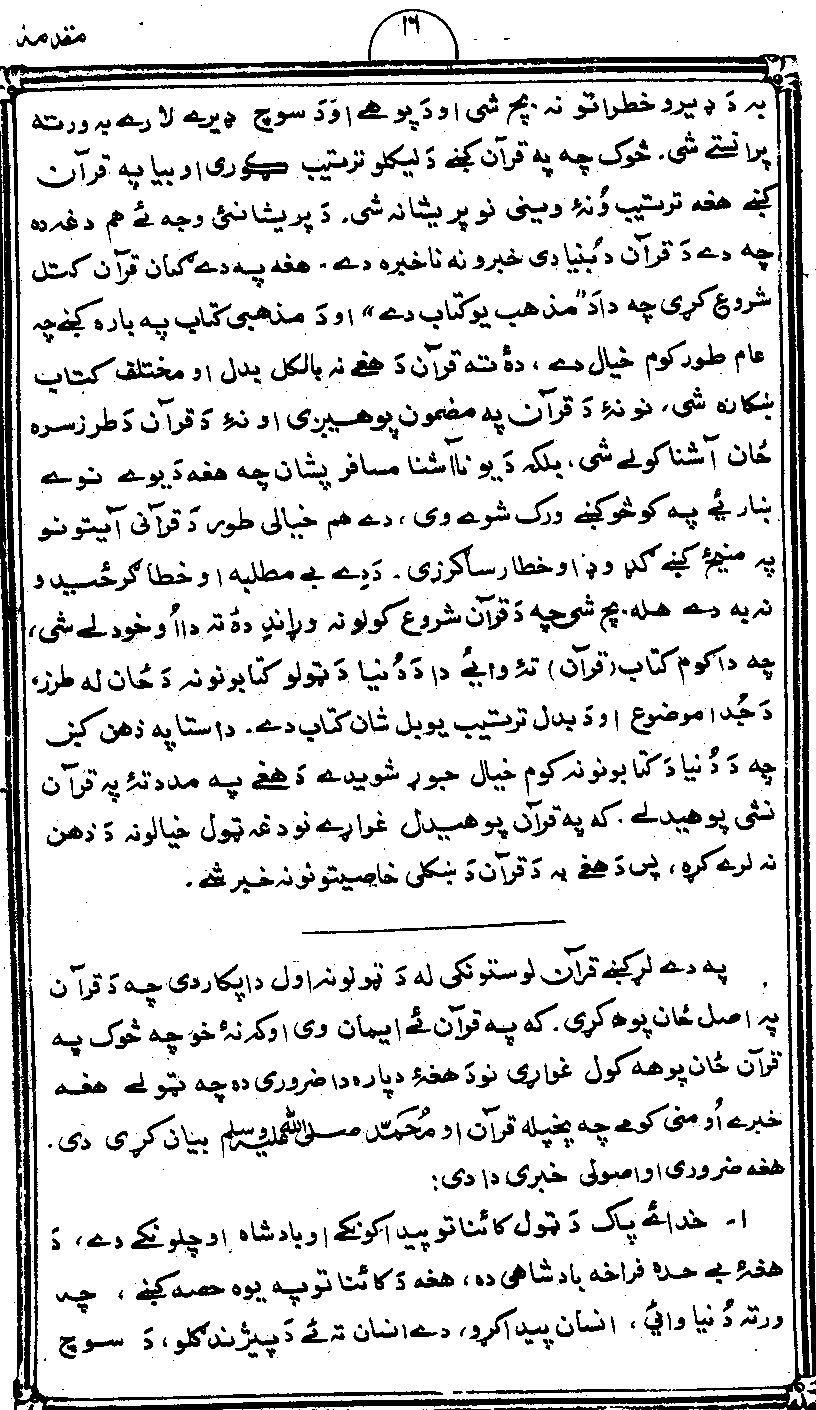 مقدمه
۱۶
به دَ ډیرو خطراتو نه بچ شی او دَ پوهے اوَ دَ سوچ ډیرے لارے به ورته
پرانستے شی. څوک چه په قرآن کښے دَ لیکلو ترتیب ګوری او بیا په قرآن
کښے هغه ترتیب وُنهٔ وینی نو پریشانه شی. دَ پریشانئ وجه ئے هم دغه ده
چه دے دَ قرآن دَ بُنیادی خبرو نه ناخبره دے. هغه په دے ګمان قرآن کتل
شروع کړی چه دا دَ "مذهب یو کتاب دے" او دَ مذهبی کتاب په باره کښے چه
عام طور کوم خیال دے، دهٔ ته قرآن دَ هغے نه بالکل بدل او مختلف کتاب
ښکاره شی، نو نهٔ دَ قرآن په مضمون پوهیږی او نهٔ دَ قرآن دَ طرز سره
ځان آشنا کولے شی، بلکه دَ یو ناآشنا مسافر پشان چه هغه دَ یوے نوے
ښاریٔے په کوڅو کښے ورک شوے وی، دے هم خیالی طور دَ قرآنی آیتونو
په منیځ کښے ګډ وډ او خطا رسا ګرزی. دَ دِے بے مطلبه او خطا ګرځیدو
نه به دے هله بچ شی چه دَ قرآن شروع کولو نه وړاندِ دهٔ ته دا اُوخودلے شی،
چه دا کوم کتاب (قرآن) تهٔ وایئ دا دَ دُنیا دَ ټولو کتابونو نه دَ ځان له طرز،
دَ جُدا موضوع او دَ بدل ترتیب یو بل شان کتاب دے. دا ستا په ذهن کښے
چه دَ دُنیا دَ کتابونو نه کوم خیال جوړ شویدے دَ هغے په مدد تهٔ په قرآن
نشی پوهیدلے. که په قرآن پوهیدل غواړے نو دغه ټول خیالونه دَ ذهن
نه لرے کړه، پس دَ هغے به دَ قرآن دَ ښکلی خاصیتونو نه خبر شے.
په دے لړ کښے قرآن لوستونکی له دَ ټولو نه اول دا پکار دی چه دَ قرآن
په اصل ځان پوهه کړی. که په قرآن ئے ایمان وی او که نهٔ خو چه څوک په
قرآن ځان پوهه کول غواړی نو دَ هغهٔ دپاره دا ضروری ده چه ټولے هغه
خبرے اُومنی کومے چه پخپله قرآن او مُحَمَّد صلی الله علیه وسلم بیان کړی دی.
هغه ضروری او اصولی خبری دا دی:
۱- خدائے پاک دَ ټول کائناتو پیدا کونکے او بادشاه او چلونکے دے، دَ
هغهٔ بے حده فراخه بادشاهی ده، هغه دَ کائناتو په یوه حصه کښے، چه
ورته دُنیا وائی، انسان پیدا کړو، دے انسان ته ئے دَ پیژندګلو، دَ سوچ